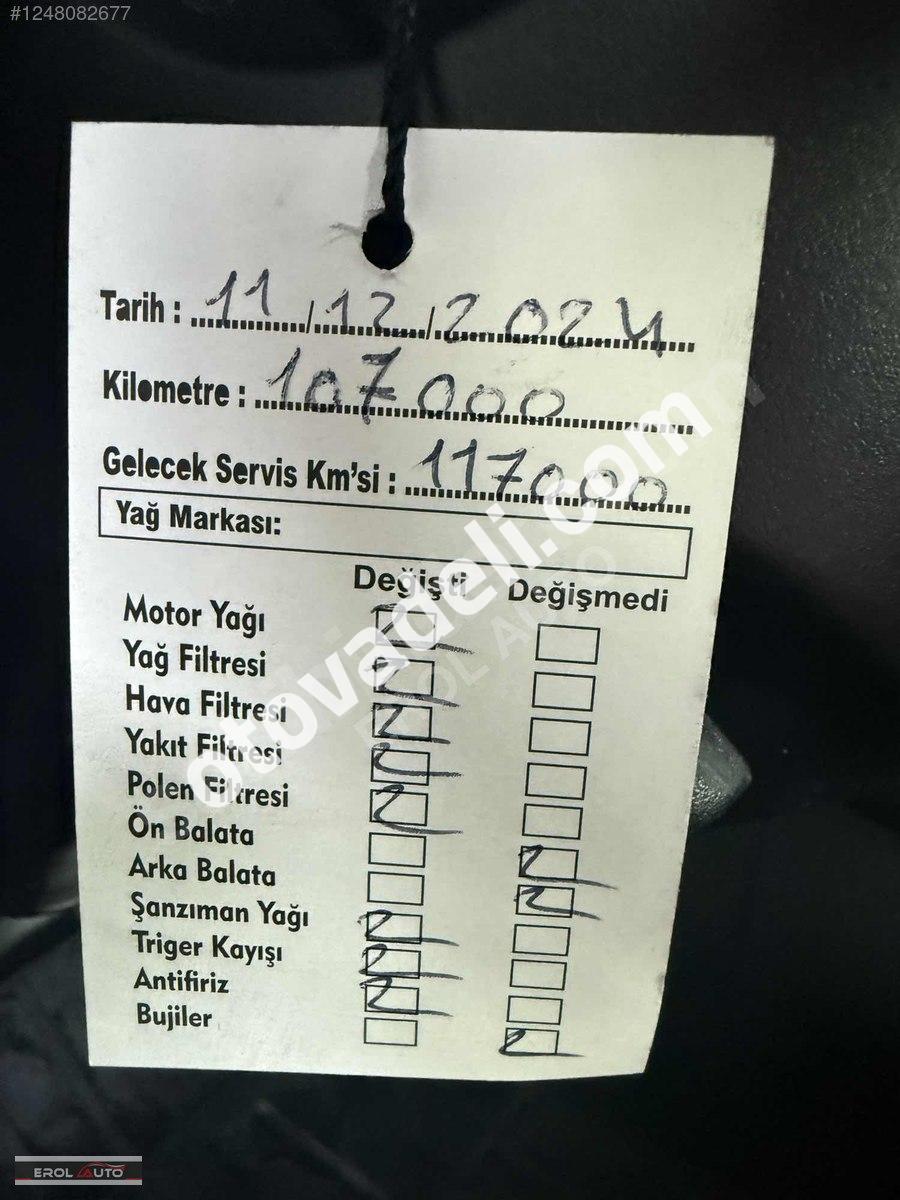 #1248082677
Tarih : 11/12/2024
Kilometre : 107000
Gelecek Servis Km'si : 117000
Yağ Markası:
Değişti Değişmedi
Motor Yağı
Yağ Filtresi
Hava Filtresi
Yakıt Filtresi
Polen Filtresi
Ön Balata
Arka Balata
Şanzıman Yağı
Triger Kayışı
Antifiriz
Bujiler
otovadeli.com
EROL AUTO
EROL AUTO